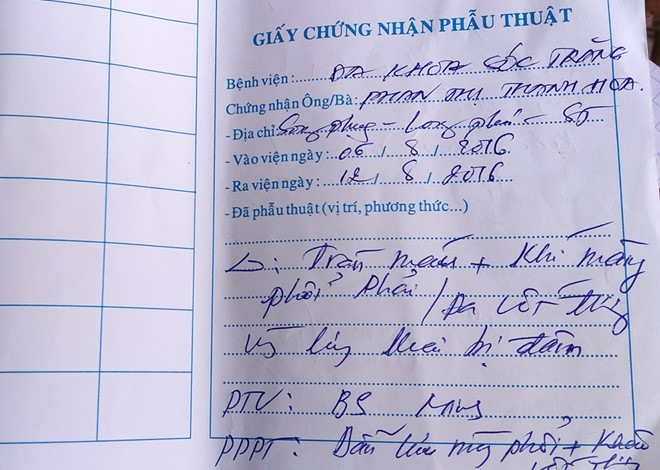 GIẤY CHỨNG NHẬN PHẪU THUẬT
Bệnh viện: ĐA KHOA SÓC TRĂNG
Chứng nhận Ông/Bà: PHAN THỊ THANH HOA.
- Địa chỉ: Song phụng - Long phú - ST
- Vào viện ngày: 05 / 8 / 2016
- Ra viện ngày: 12 / 8 / 2016
- Đã phẫu thuật (vị trí, phương thức...)
Δ: Tràn máu + Khí màng
phổi phải / Đa vết thương
lưng bị đâm
PTV: BS
PPPT: Dẫn lưu màng phổi + Khâu